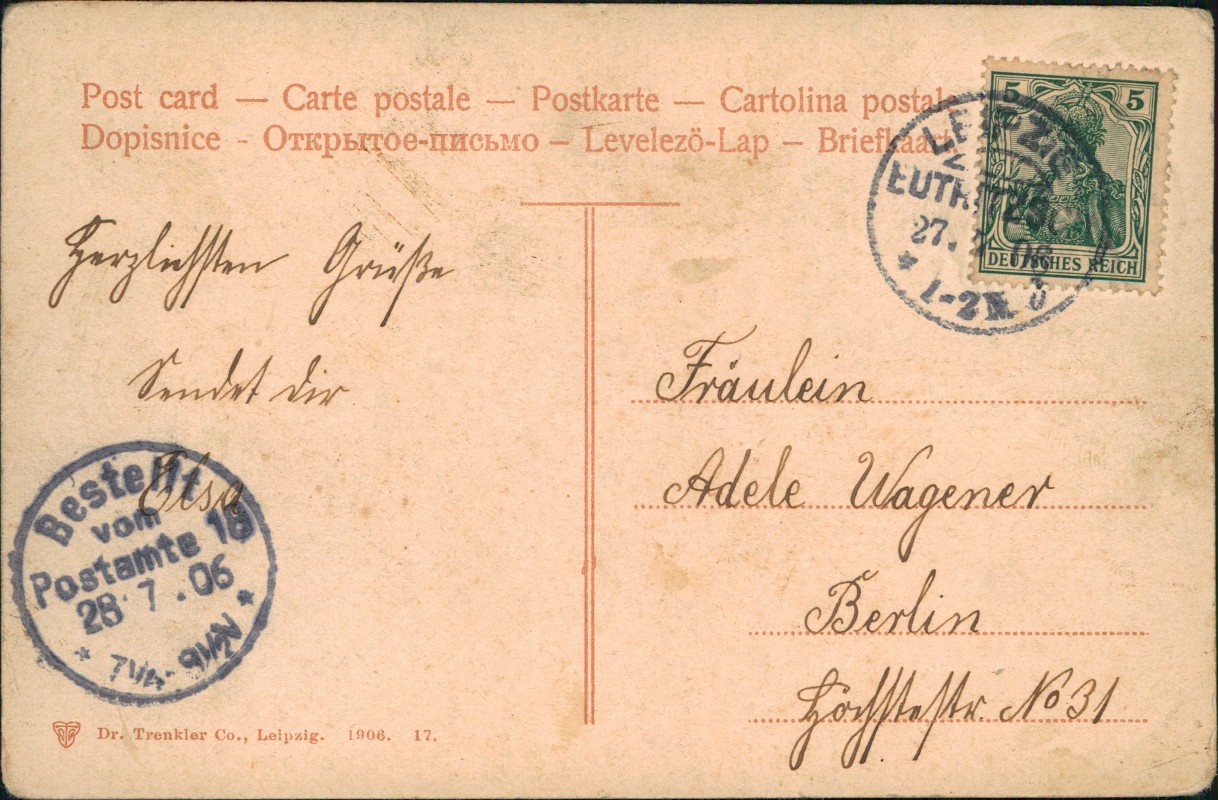 Post card — Carte postale — Postkarte — Cartolina postale
Dopisnice - Открытое-письмо – Levelezö-Lap – Briefkaart
5 5
DEUTSCHES REICH
LEIPZIG
EUTRITZSCH
27. 7. 06
* 1-2 N.
Herzlichsten Grüße
Sendet dir
Elsa
Fräulein
Adele Wagener
Berlin
Höchstestr. No 31
Bestellt
vom
Postamte 18
28. 7. 06
* 7 1/4 - 9 1/2 N *
Dr. Trenkler Co., Leipzig. 1906. 17.